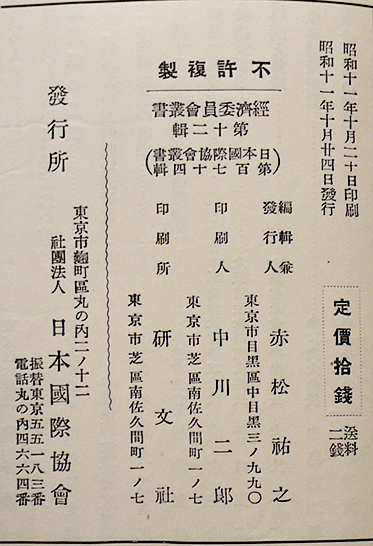 昭和十一年十月二十日印刷
昭和十一年十月廿四日發行
定價拾錢
送料二錢
不許複製
經濟委員會叢書
第十二輯
(日本國際協會叢書
第百七十四輯)
編輯兼發行人
東京市目黑區中目黑三ノ九九〇
赤松祐之
印刷人
東京市芝區南佐久間町一ノ七
中川二郎
印刷所
東京市芝區南佐久間町一ノ七
研文社
發行所
東京市麴町區丸の內二ノ十二
社團法人 日本國際協會
振替東京五五一八三番
電話丸の內四六六四番